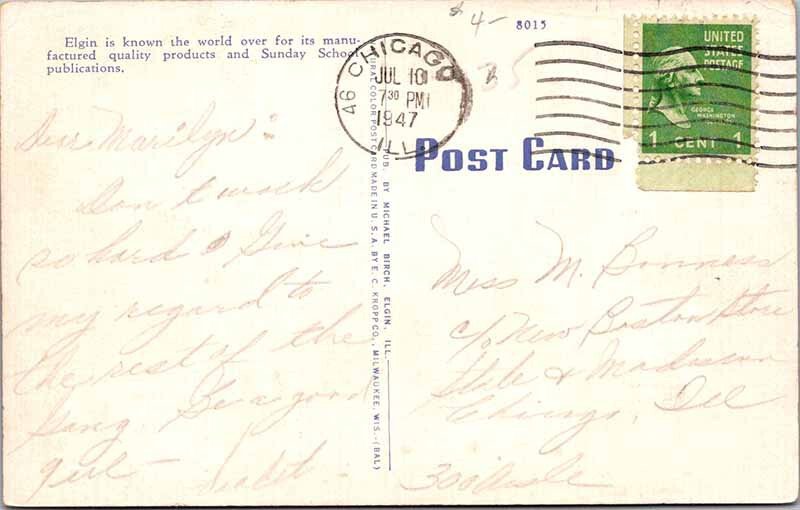 $4-
8015
Elgin is known the world over for its manu-
factured quality products and Sunday School
publications.
CHICAGO
46
JUL 10
7 30 PM
1947
ILL.
UNITED
STATES
POSTAGE
GEORGE
WASHINGTON
1 CENT 1
POST CARD
35
PUB. BY MICHAEL BIRCH, ELGIN, ILL.
URAL COLOR POST CARD MADE IN U. S. A. BY E. C. KROPP CO., MILWAUKEE, WIS.-(BAL)
Dear Marilyn:
Don't work
so hard. Give
my regard to
the rest of the
gang. Be a good
girl-
Miss M. Bonness
c/o New Boston Store
State & Madison
Chicago, Ill
300 Aisle